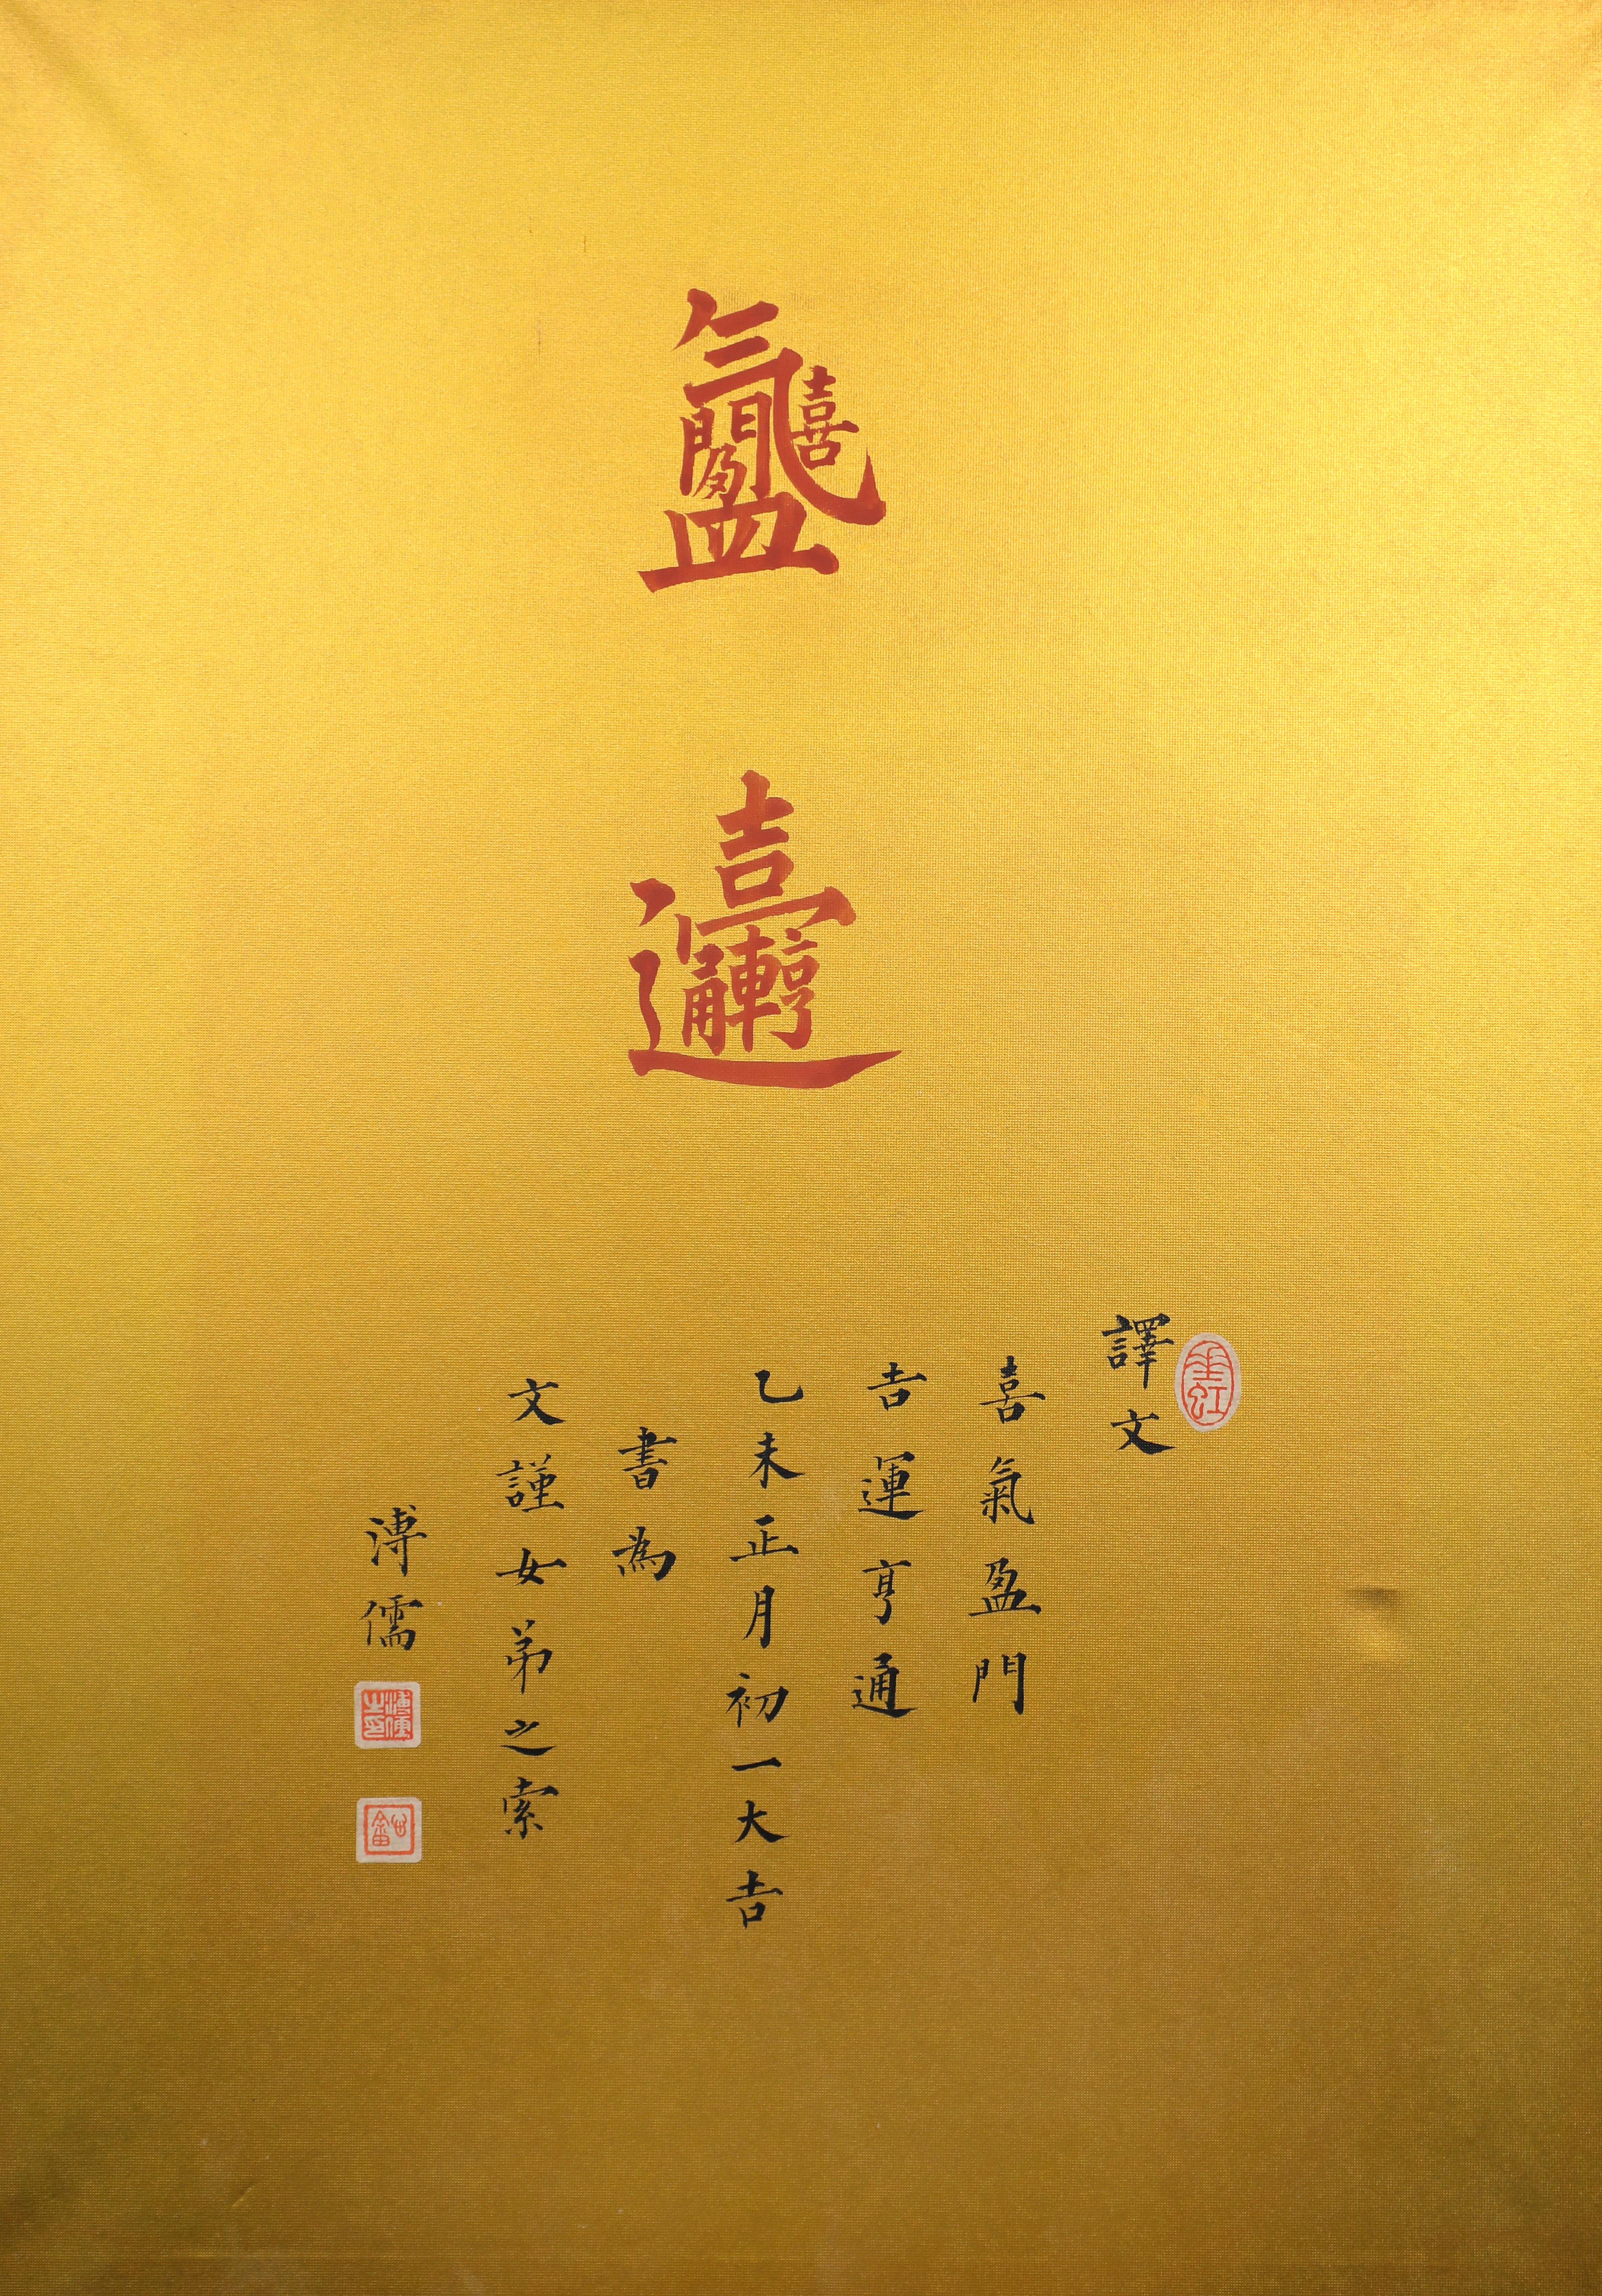 譯文
喜氣盈門
吉運亨通
乙未正月初一大吉
書為
文謹女弟之索
溥儒
溥儒之印